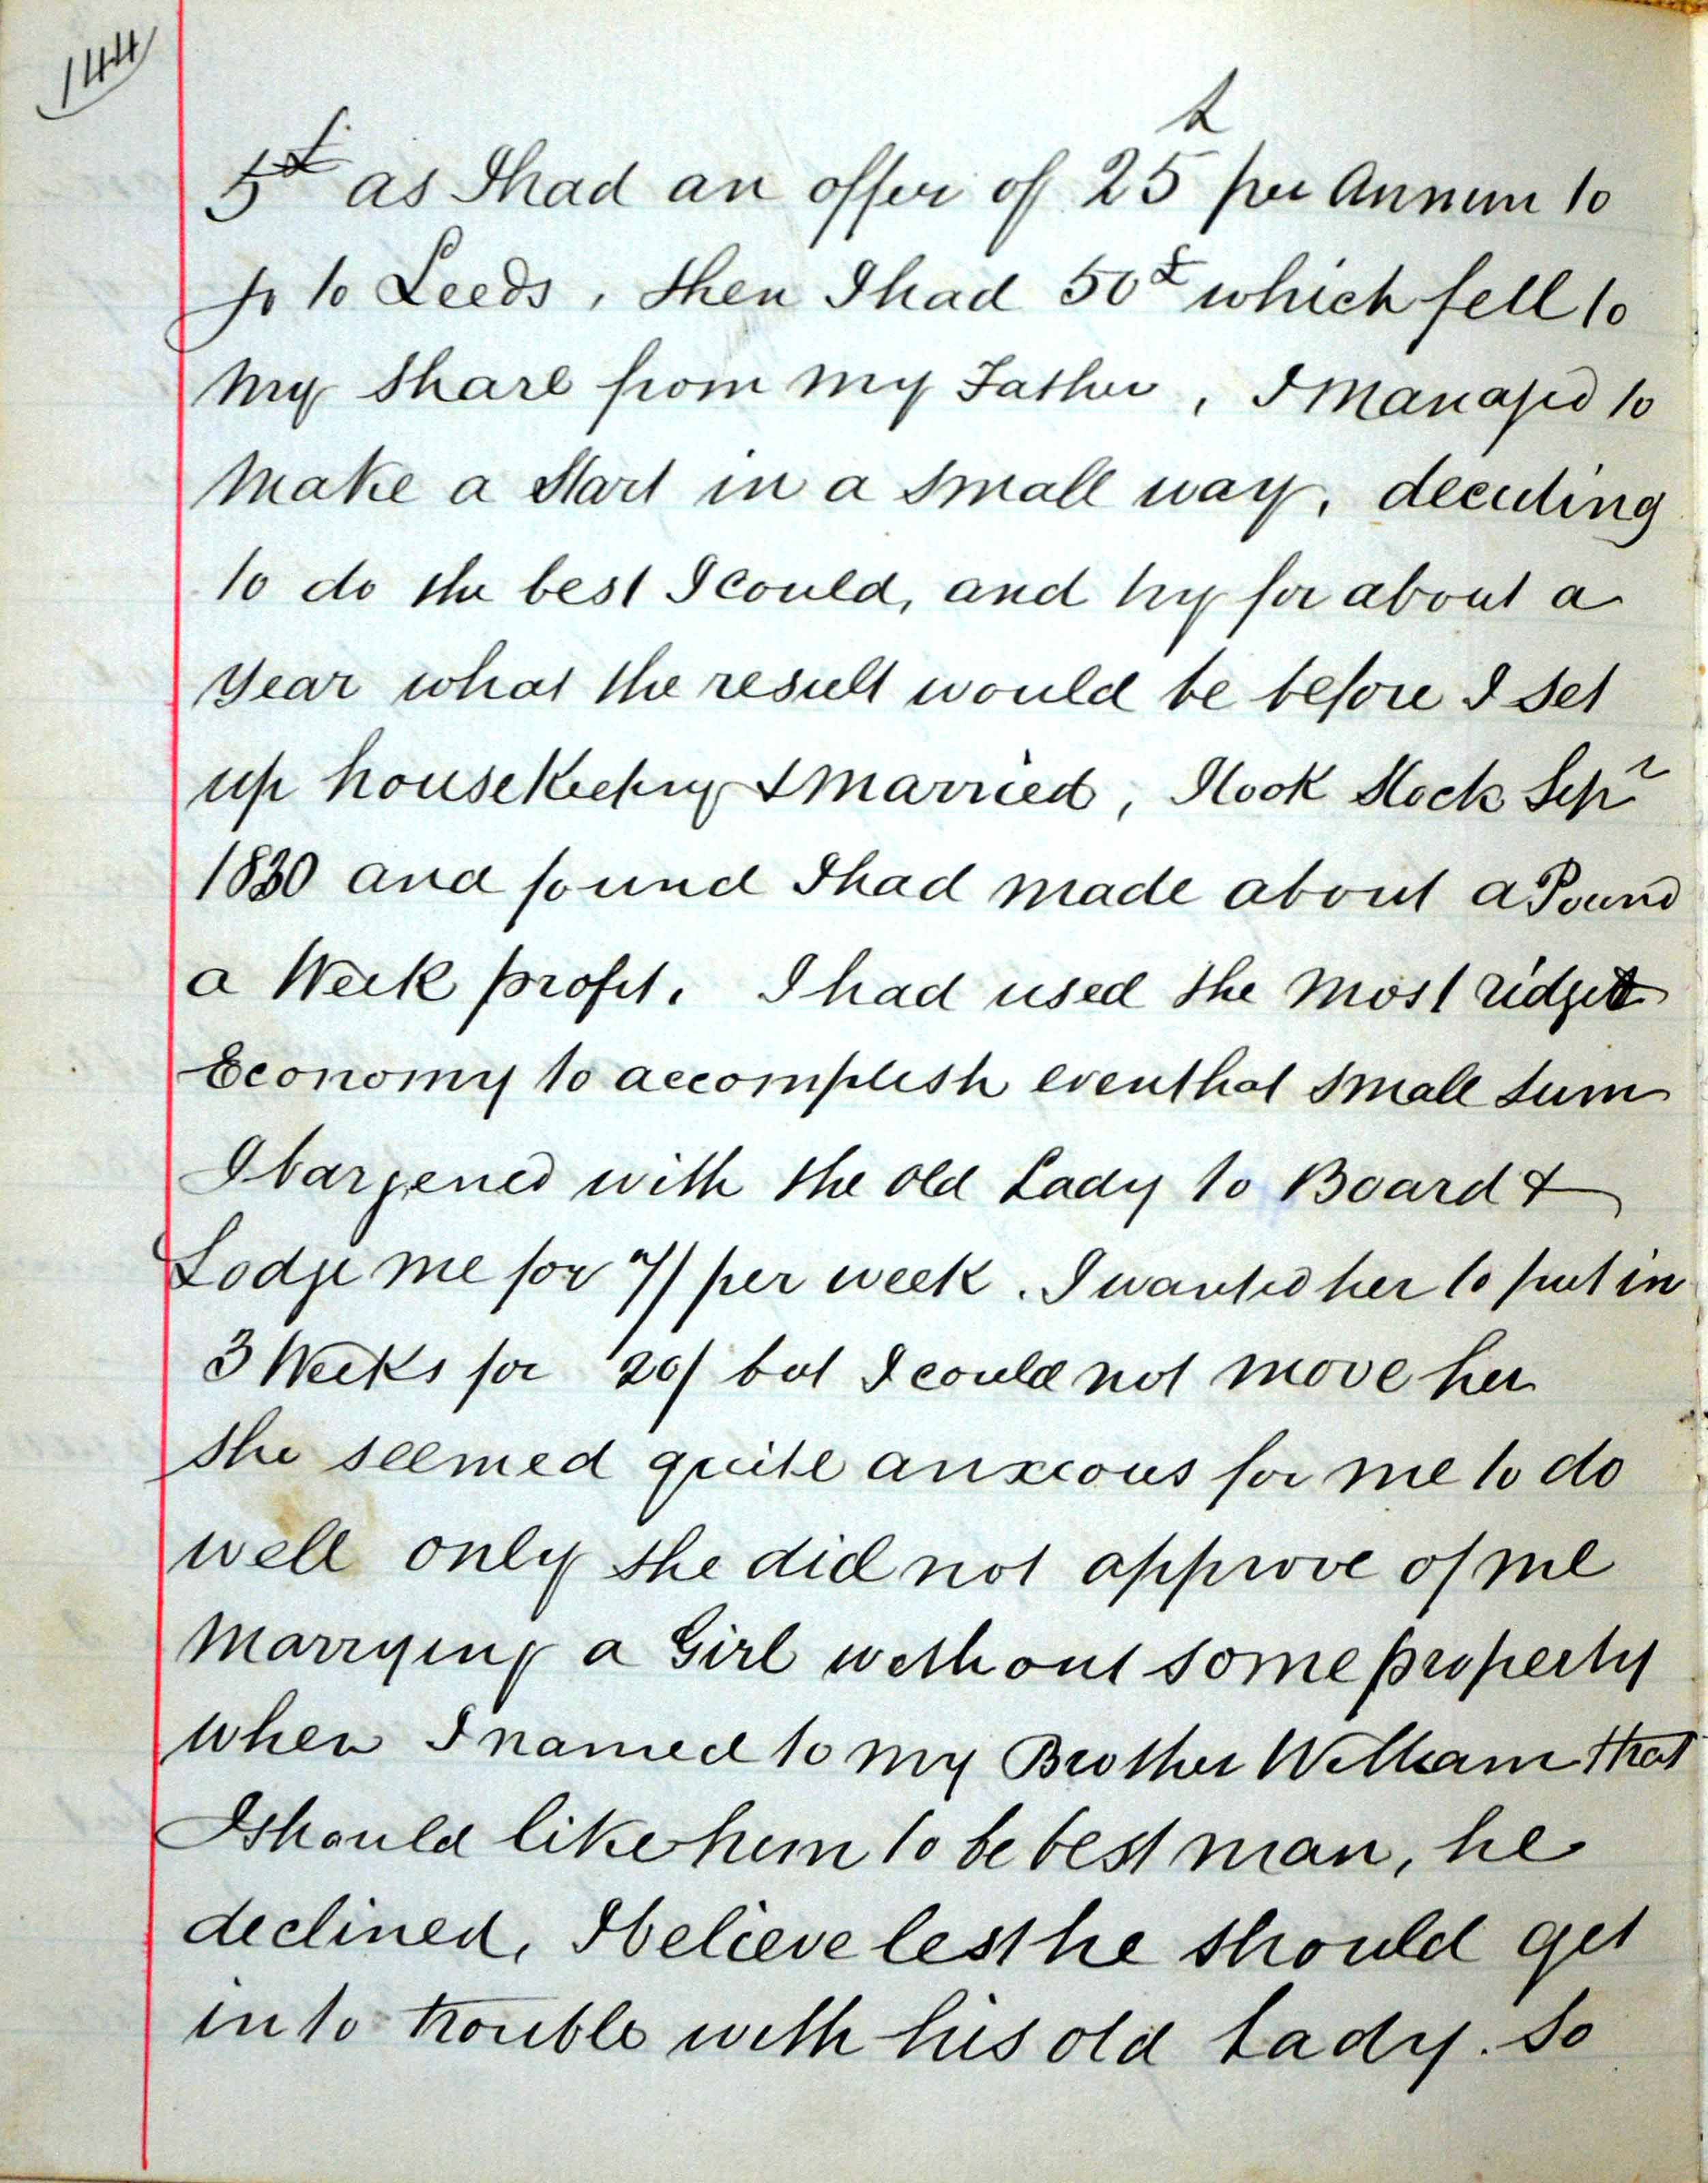 144
5£ as I had an offer of 25£ per Annum to
go to Leeds, then I had 50£ which fell to
my share from my Father, I Managed to
Make a Start in a small way, deciding
to do the best I could, and try for about a
Year what the result would be before I set
up housekeeping & married, I took Stock Sepr
1830 and found I had made about a Pound
a Week profit. I had used the most ridget
Economy to accomplish even that small sum
I bargened with the old Lady to Board &
Lodge me for 7/ per week. I wanted her to put in
3 Weeks for 20/ but I could not move her
she seemed quite anxious for me to do
well only she did not approve of me
Marrying a Girl without some property
when I named to my Brother William that
I should like him to be best man, he
declined, I believe lest he should get
into trouble with his old Lady. So